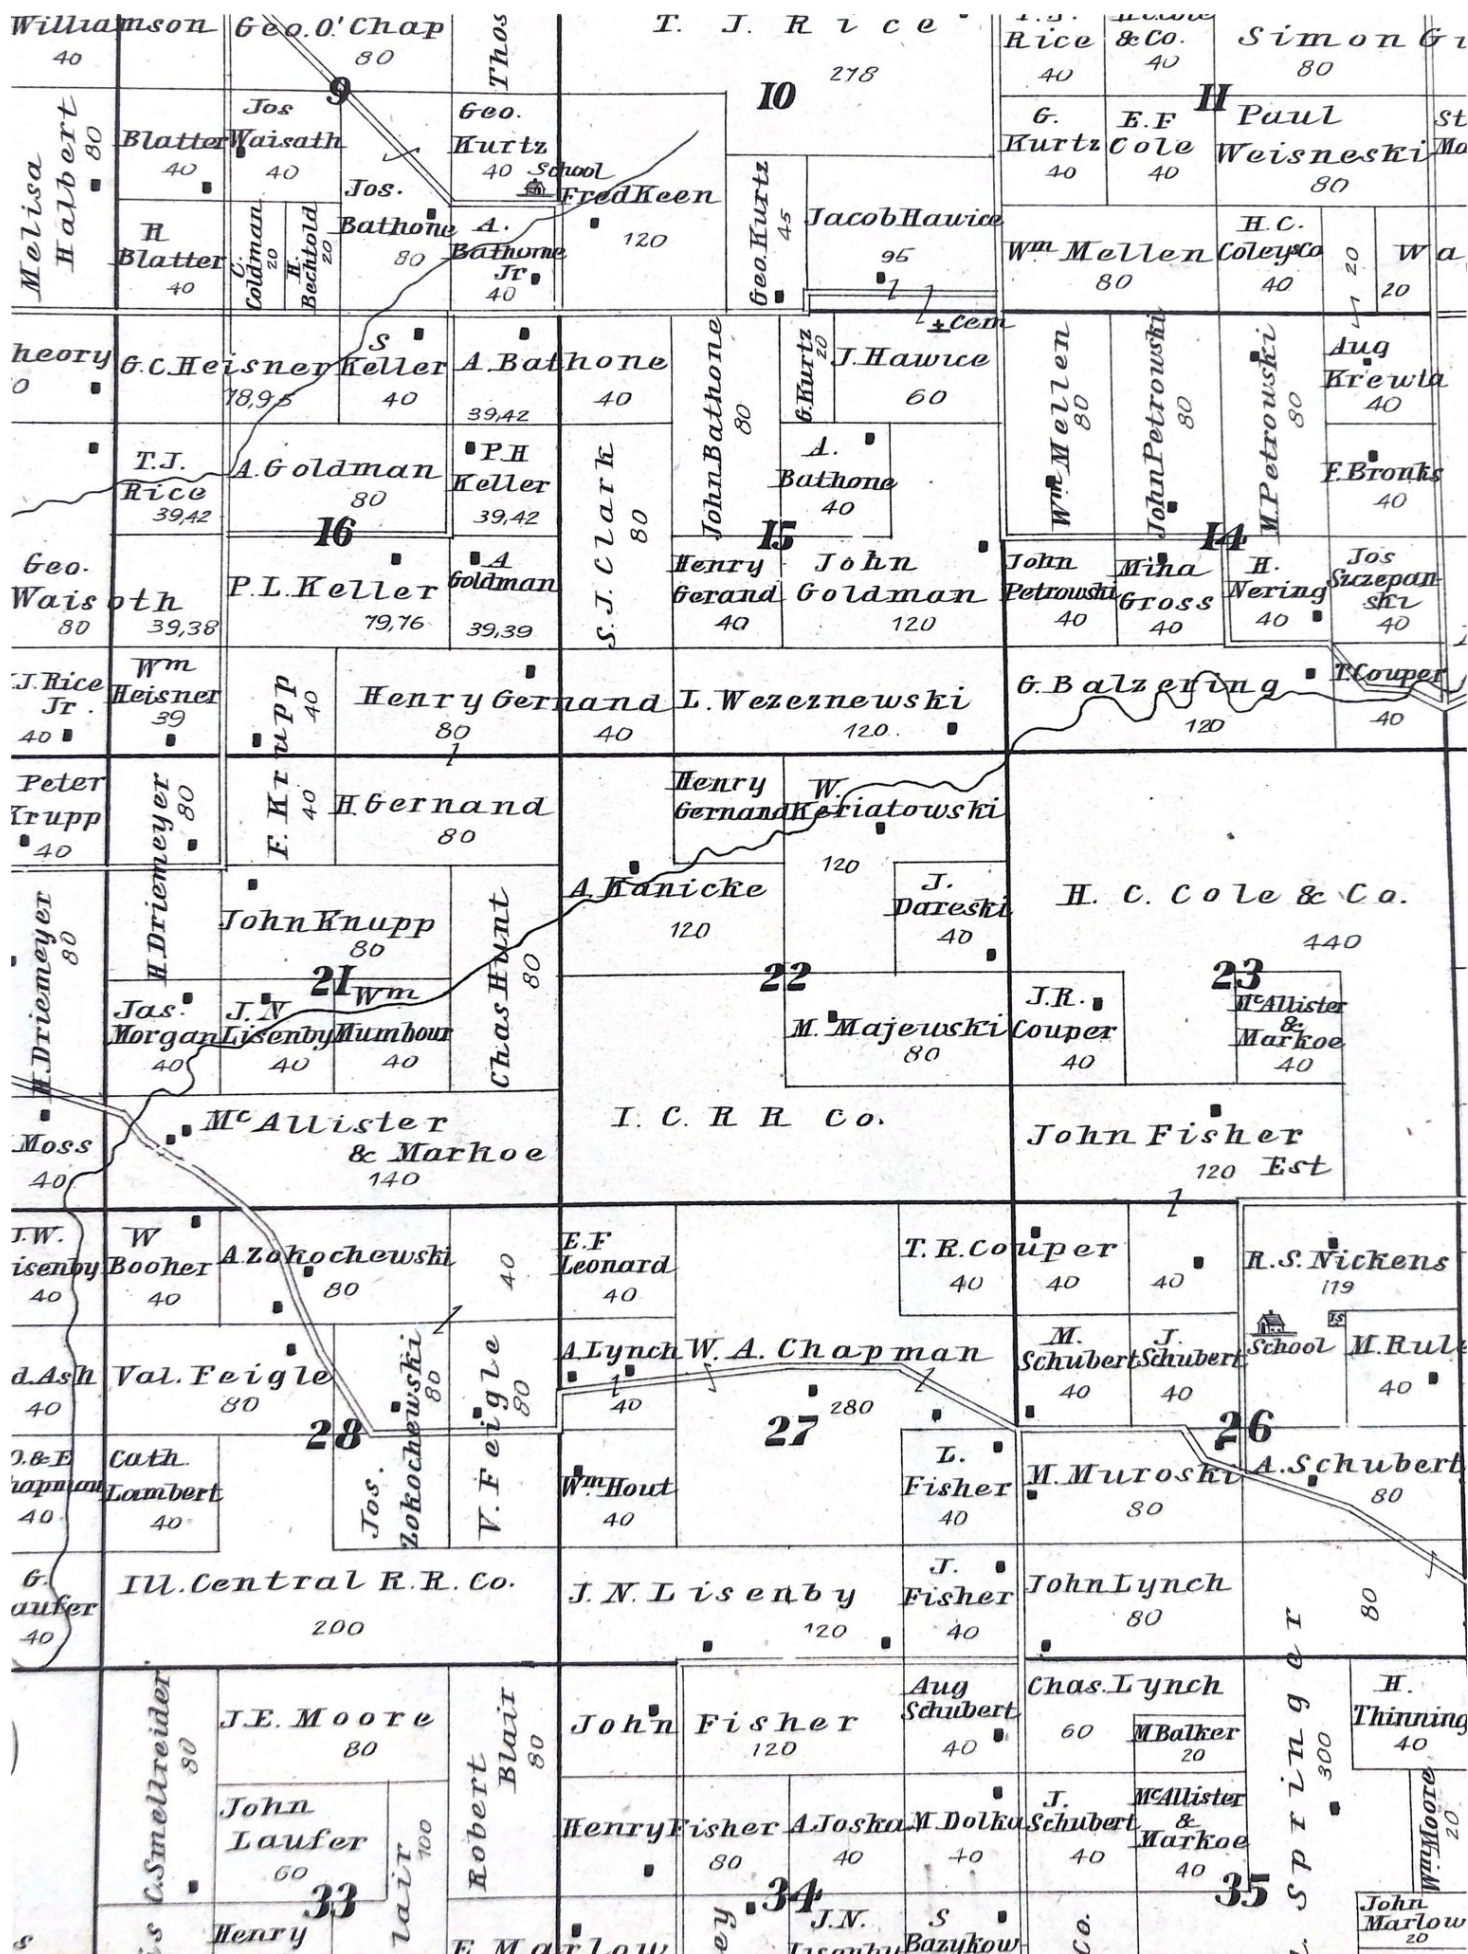 Williamson
40
Geo. O. Chap
80
Thos
T. J. Rice
278
Rice
40
& Co.
40
Simon Gi
80
9
10
11
Melisa
Halbert
80
Blatter
40
Jos
Waisath
40
Geo.
Kurtz
40
School
Jos.
Bathone
80
Fred Keen
120
G.
Kurtz
40
E.F
Cole
40
Paul
Weisneski
80
St
Ma
R
Blatter
40
C.
Goldman
20
H.
Bechtold
20
A.
Bathorne
Jr.
40
Geo. Kurtz
45
Jacob Hawice
95
Wm Mellen
80
H.C.
Coley & Co
40
20
Wa
20
Cem
heory
0
G.C. Heisner
78,95
S
Keller
40
A. Bathone
39,42
40
John Bathone
80
G. Kurtz
20
J. Hawice
60
Wm Mellen
80
John Petrowski
80
M. Petrowski
80
Aug
Krewla
40
T.J.
Rice
39,42
A. Goldman
80
P H
Keller
39,42
S. J. Clark
80
A.
Bathone
40
F. Bronks
40
16
15
14
Geo.
Waisoth
80
39,38
P. L. Keller
79,76
A
Goldman
39,39
Henry
Gerand
40
John
Goldman
120
John
Petrowski
40
Mina
Gross
40
H.
Nering
40
Jos
Szczepan
ski
40
J. Rice
Jr.
40
Wm
Heisner
39
F. Krupp
40
40
Henry Gernand
80
40
L. Wezeznewski
120
G. Balzering
120
T. Couper
40
Peter
Krupp
40
H. Driemeyer
80
H. Gernand
80
Henry
Gernand
W.
Keriatowski
120
H. Driemeyer
80
John Knupp
80
Chas Hunt
80
A. Kanicke
120
J.
Dareski
40
H. C. Cole & Co.
440
21
22
23
Jas.
Morgan
40
J. N
Lisenby
40
Wm
Mumbour
40
M. Majewski
80
J.R.
Couper
40
McAllister
&
Markoe
40
Moss
40
McAllister
& Markoe
140
I. C. R R Co.
John Fisher
120 Est
J.W.
isenby
40
W
Booher
40
A Zokochewski
80
40
E.F
Leonard
40
T. R. Couper
40
40
40
R. S. Nickens
119
d. Ash
40
Val. Feigle
80
Jos.
Zokochewski
80
V. Feigle
80
A. Lynch
40
W. A. Chapman
280
M.
Schubert
40
J.
Schubert
40
School
M. Rule
40
28
27
26
O. & E
hapman
40
Cath.
Lambert
40
Wm. Hout
40
L.
Fisher
40
M. Muroski
80
A. Schubert
80
G.
aufer
40
Ill. Central R. R. Co.
200
J. N. Lisenby
120
J.
Fisher
40
John Lynch
80
80
C. Smellreider
80
J. E. Moore
80
Robert
Blair
80
John Fisher
120
Aug
Schubert
40
Chas. Lynch
60
M Balker
20
Springer
300
H.
Thinning
40
John
Laufer
60
lair
100
Henry Fisher
80
A Joska
40
M. Dolka
40
J.
Schubert
40
McAllister
&
Markoe
40
Wm Moore
20
33
34
35
s
is
Henry
F. Marlow
ey
J.N.
Lisenby
S
Bazykow
Co.
John
Marlow
20